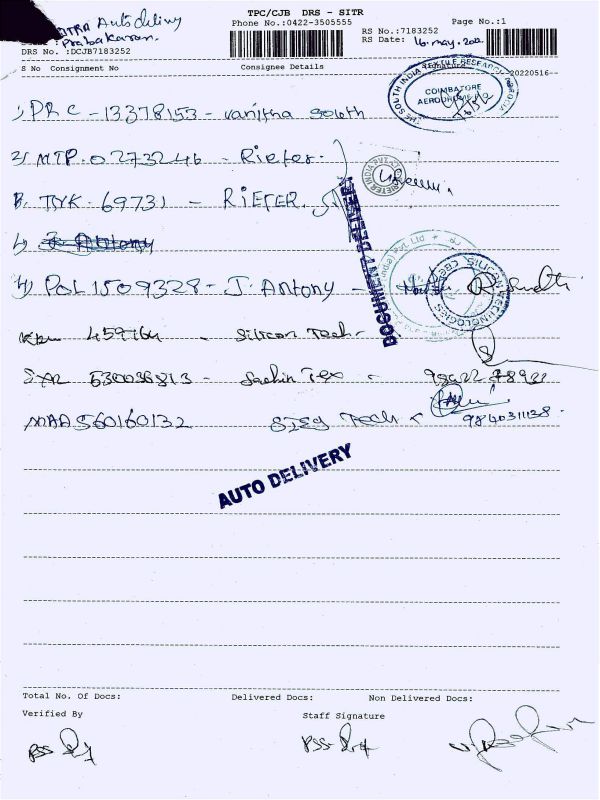 TPC/CJB DRS - SITR
Phone No.:0422-3505555 Page No.:1
RS No.:7183252
SITRA Auto delivery
Praba Karan.
RS Date: 16.may.2022
DRS No. :DCJB7183252
S No Consignment No Consignee Details Signature 20220516
THE SOUTH INDIA TEXTILE RESEARCH
COIMBATORE
AERODROME
1) PRC - 13378153 - Vanitha South
2) MTP. 0273246 - Rieter.
3. TNK. 69731 - RIETER
RIETER INDIA PVT.
DOCUMENT DELIVERY
4) J. Antony
4) POL 1509328 - J. Antony
459764 - Silicon Tech
SILICON
630036813 - Sachin Tex
MAA 560160132 Tech
9840311138
AUTO DELIVERY
Total No. Of Docs: Delivered Docs: Non Delivered Docs:
Verified By Staff Signature